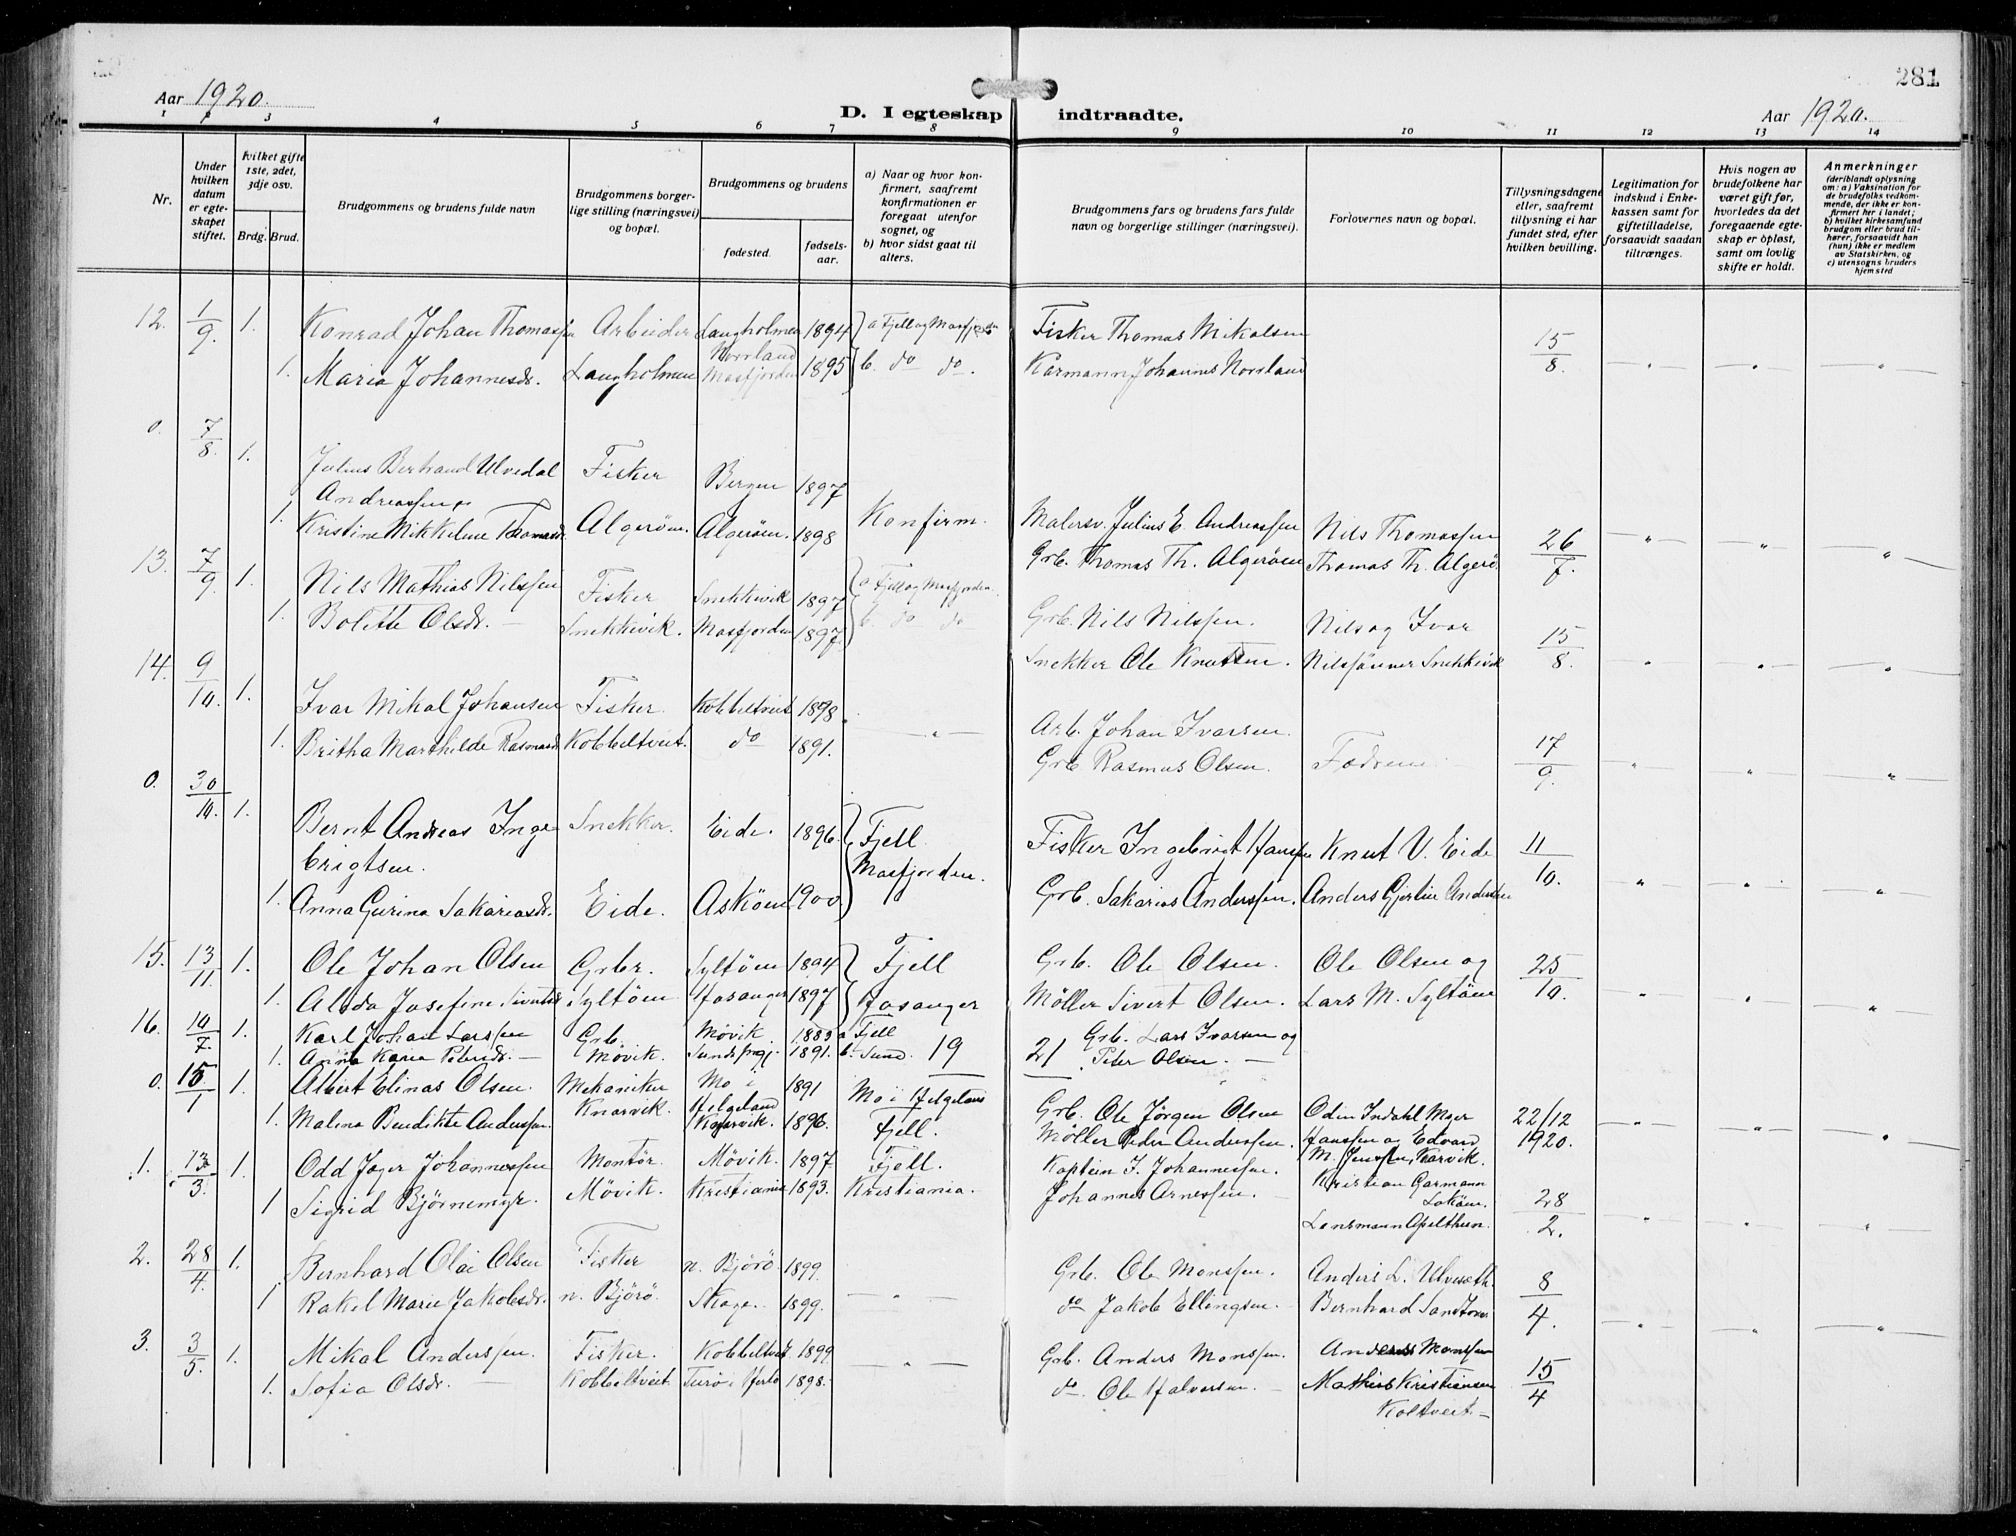 281
Aar 1920.
D. I egteskap indtraadte.
Aar 1920.
1 2 3 4 5 6 7 8 9 10 11 12 13 14
Nr.
Under hvilken datum er egteskapet stiftet.
hvilket gifte 1ste, 2det, 3dje osv.
Brdg. Brud.
Brudgommens og brudens fulde navn
Brudgommens borgerlige stilling (næringsvei) og bopæl.
Brudgommens og brudens
fødested.
fødselsaar.
a) Naar og hvor konfirmert, saafremt konfirmationen er foregaat utenfor sognet, og b) hvor sidst gaat til alters.
Brudgommens fars og brudens fars fulde navn og borgerlige stillinger (næringsvei).
Forlovernes navn og bopæl.
Tillysningsdagene eller, saafremt tillysning ei har fundet sted, efter hvilken bevilling.
Legitimation for indskud i Enkekassen samt for giftetilladelse, forsaavidt saadan tiltrænges.
Hvis nogen av brudefolkene har været gift før, hvorledes da det foregaaende egteskap er opløst, samt om lovlig skifte er holdt.
Anmerkninger (deriblandt oplysning om: a) Vaksination for de brudefolks vedkommende, der ikke er konfirmert her i landet; b) hvilket kirkesamfund brudgom eller brud tilhører, forsaavidt han (hun) ikke er medlem av Statskirken, og c) utensogns bruders hjemsted
12. 1/9 1. Konrad Johan Thomassen Arbeider Langholmen 1894 a Fjell og Masfjorden Fisker Thomas Mikalsen 15/8
1. Maria Johannesdr. Langholmen Norrland Masfjorden 1895 b. do do. Kармann Johannes Norrland
0. 7/8 1. Julius Bertrand Ulvedal Andreassen Fisker Bergen 1897 Malersv. Julius E. Andreassen Nils Thomassen 26/7.
1. Kristine Mikkeline Thomasdr. Algerøen. Algerøen. 1898 Konfirm. Grb. Thomas Th. Algerøen Thomas Th. Algerø.
13. 7/9 1. Nils Mathias Nilssen Fisker Snekkevik 1897 a. Fjell og Masfjorden. Grb. Nils Nilssen. Nils og Ivar 15/8.
1. Bolette Olsdr. Snekkevik. Masfjorden 1897 b. do do Snekker Ole Knutsen. Nilssønner Snekkevik
14. 9/10 1. Ivar Mikal Johansen Fisker. Kobbeltveit 1898. Arb. Johan Ivarsen 17/9.
1. Britha Marthilde Rasmusdr. Kobbeltveit. do 1891. Grb. Rasmus Olsen. Fædrene
0. 30/10. 1. Bernt Andreas Ingebrigtsen. Snekker. Eide. 1896 Fjell Fisker Ingebrigt Hanssen Knut V. Eide 11/10.
1. Anna Gurina Sakariasdr. Eide. Askøen 1900 Masfjorden. Grb. Sakarias Anderssen. Anders Gjertin Anderssen
15. 13/11 1. Ole Johan Olsen Grbr. Syltøen 1894 Fjell Grb. Ole Olsen. Ole Olsen og 25/10.
1. Alida Josefine Sivertsdr. Syltøen Hosanger 1897 Hosanger Møller Sivert Olsen. Lars M. Syltøen
16. 10/7 1. Karl Johan Larssen Grb. Møvik 1883 a Fjell Grb. Lars Ivarsen og
1. Anna Karia Petersdr. Møvik. Sunds prgj. 1891. b. Sund. 19 21 Peter Olsen.
0. 15/1 1. Albert Elinas Olsen. Mekaniker Mo i Helgeland 1891 Mo i Helgeland Grb. Ole Jørgen Olsen Odin Indahl Myer 22/12
1. Malena Bendikte Anderssen. Knarvik. Knarvik. 1896. Fjell. Møller Peder Anderssen. Hanssen og Edvard M. Jenssen, Karvik. 1920.
1. 13/3. 1. Odd Jager Johannessen Montør. Møvik. 1897 Fjell. Kaptein J. Johannessen. Kristian Garmann Løkøen. 28/2.
1 Sigrid Bjørnemyr. Møvik. Kristiania 1893. Kristiania. Johannes Arnessen. Lensmann Apelthun.
2. 28/4 1. Bernhard Olai Olsen Fisker n. Bjørø 1899. Grb. Ole Monssen. Anders L. Ulveseth 8/4.
1 Rakel Marie Jakobsdr. n. Bjørø. Skoge. 1899. do Jakob Ellingsen. Bernhard Sandtorv
3. 3/5. 1. Mikal Anderssen. Fisker. Kobbeltveit. 1899 Grb. Anders Monssen. Anders Monssen 15/4
1. Sofia Olsdr. Kobbeltveit. Turø i Herlø 1898. do. Ole Halvorsen. Mathias Kristiansen Koltveit.